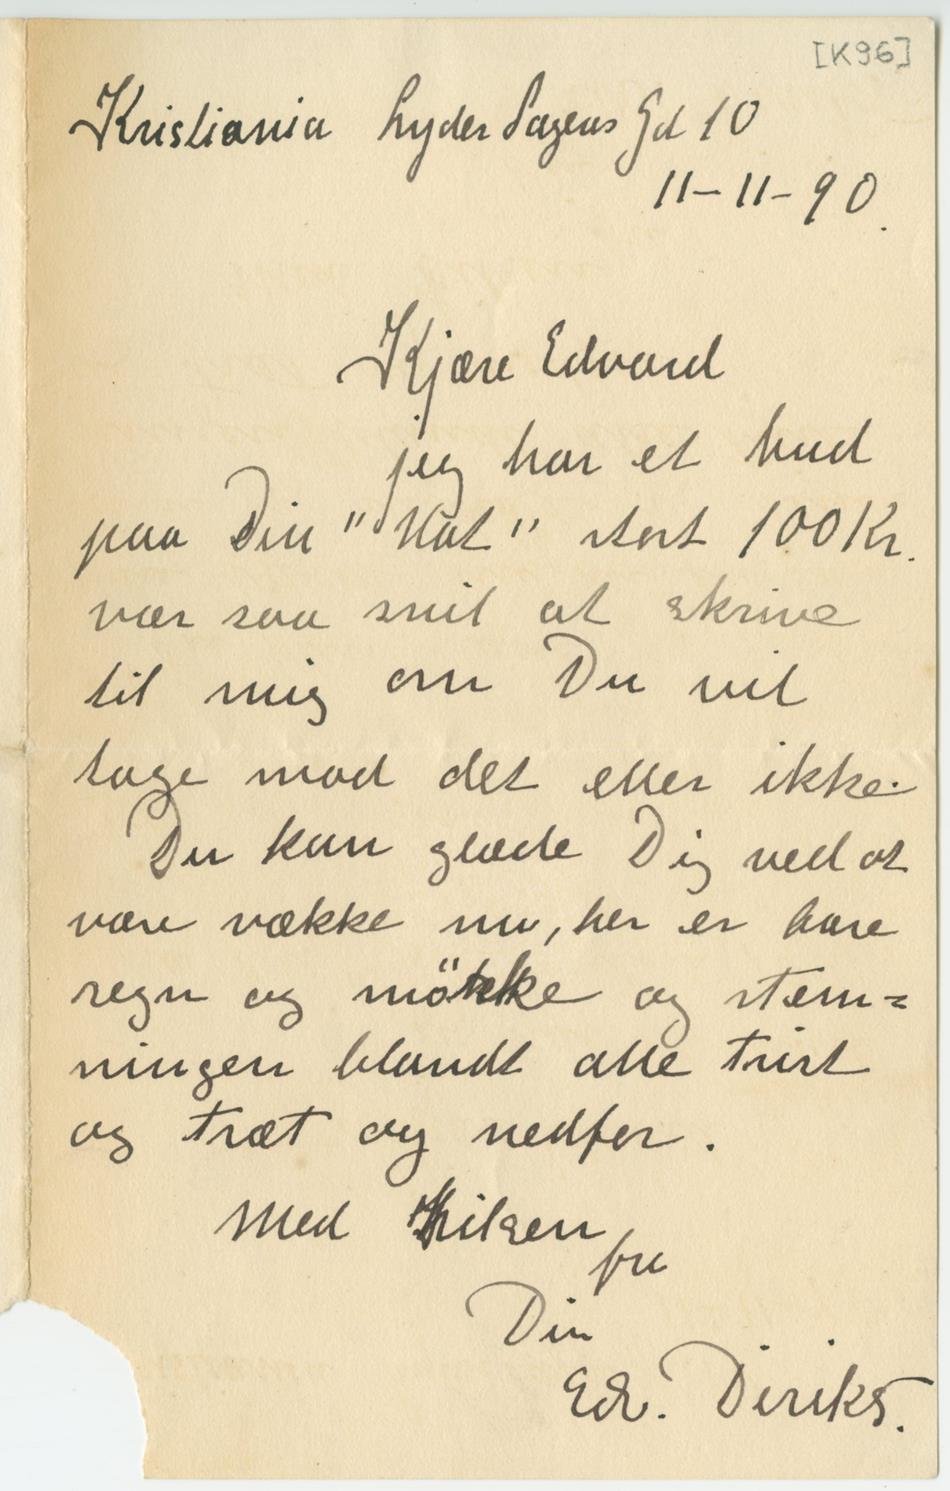 [K96]
Kristiania Lyder Sagens Gd 10
11-11-90.
Kjære Edvard
jeg har et bud
paa Din "Nat" stort 100 Kr.
vær saa snil at skrive
til mig om Du vil
tage mod det eller ikke.
Du kan glæde Dig ved at
være vække nu, her er bare
regn og mökke og stem=
ningen blandt alle trist
og træt og nedfor.
Med Hilsen
fra
Din
Edv. Diriks.